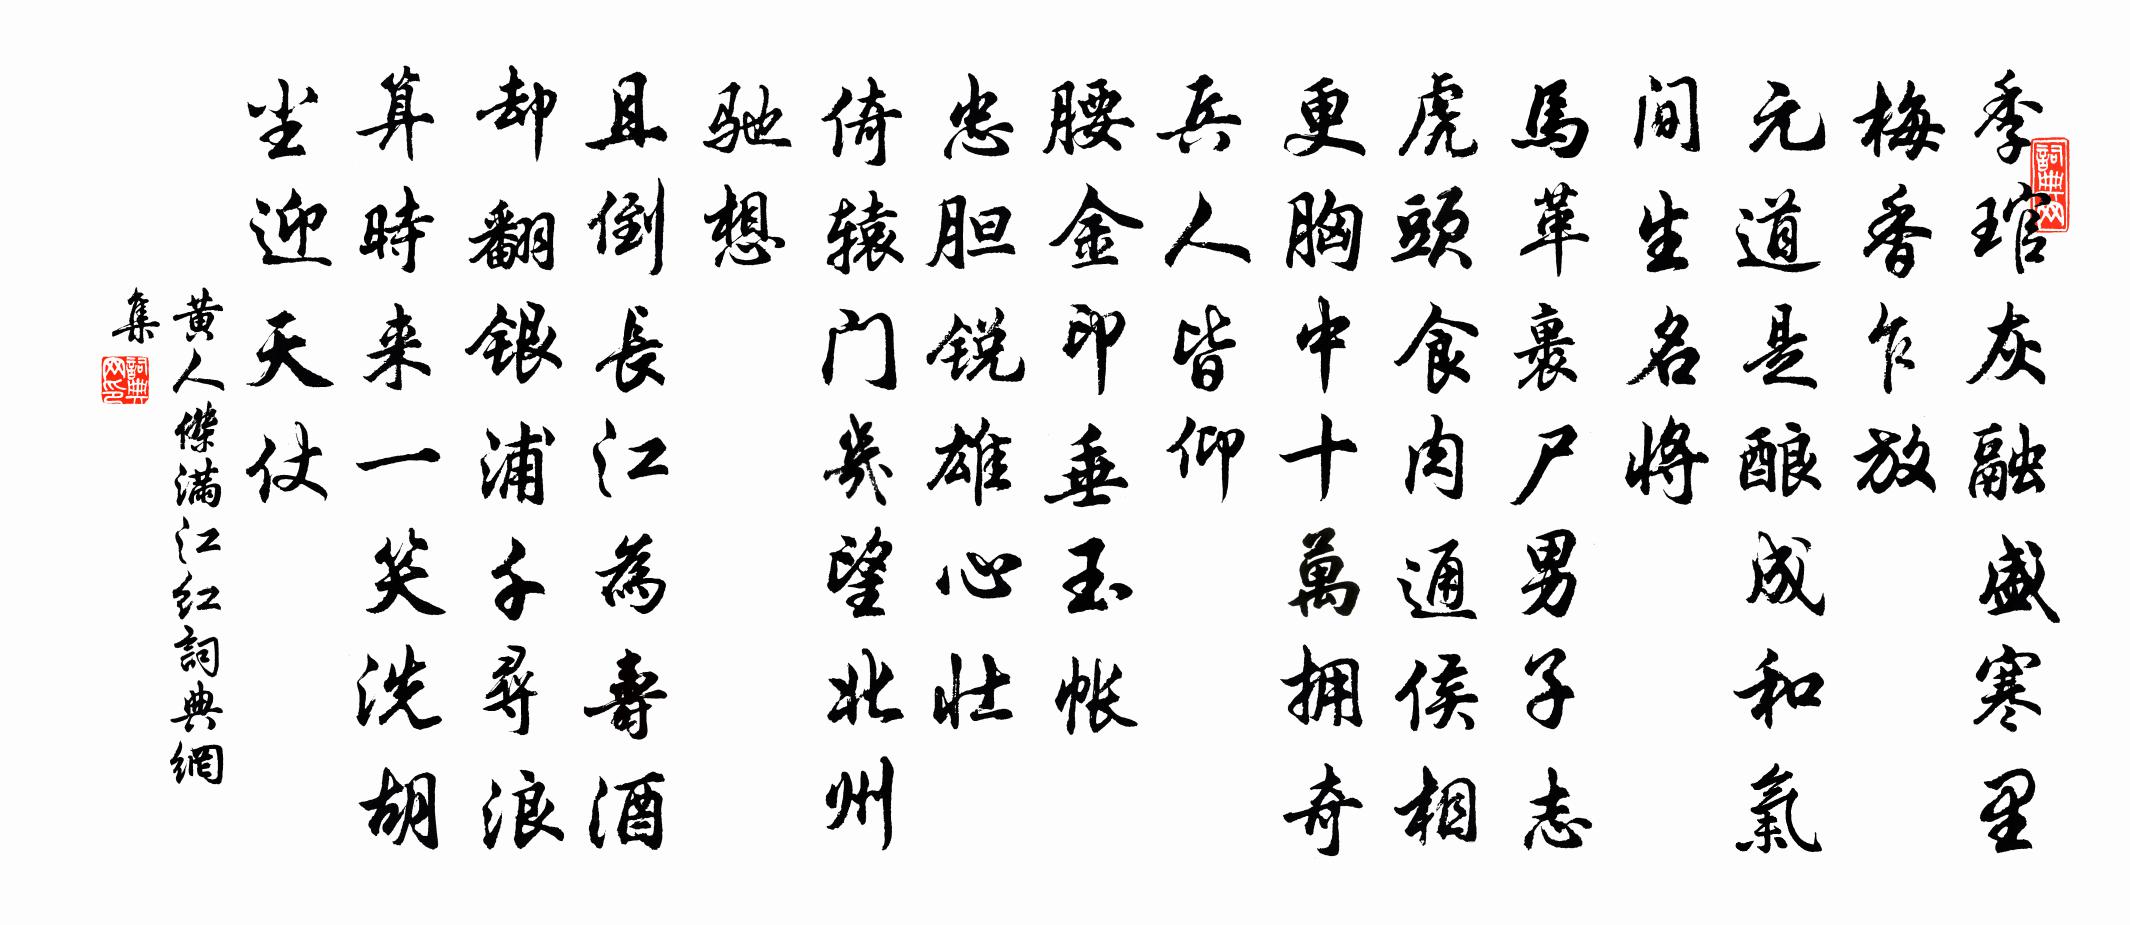 季琯灰融盛寒里
梅香乍放
元道是酿成和氣
间生名将
馬革裹尸男子志
虎頭食肉通侯相
更胸中十萬拥奇
兵人皆仰
腰金印垂玉帐
忠胆锐雄心壮
倚辕门幾望北州
驰想
且倒長江為壽酒
却翻银浦千尋浪
算時来一笑洗胡
尘迎天仗
黄人傑满江红詞典網
集
詞典网
詞典网印